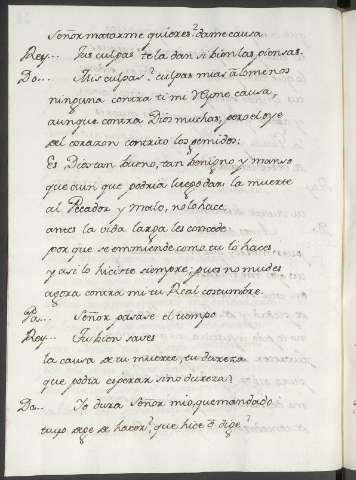 Señor matarme quieres? dame causa
Rey... Tus culpas te la dan si bien las piensas.
Do... Mis culpas? culpas mias ā lo menos
ninguna contra ti mi dYgne causa,
aunque contra Dios muchas, pero el oye
del corazon contrito los gemidos:
Es Dios tan bueno, tan benigno y manso
que aun que podria luego dar la muerte
al Pecador y malo, no lo hace,
antes la vida larga les concede
por que se emmiende como tu lo haces,
y asi lo hiciste siempre; pues no mudes
agora contra mi tu Real costumbre.
Pa... Señor pasase el tiempo
Rey... Tu bien saves
la causa de tu muerte, tu dureza
que podia esperar sino dureza?
Do... Yo dura Señor mio, que mandado
tuyo dege de hacer? que hice q̄ dige?